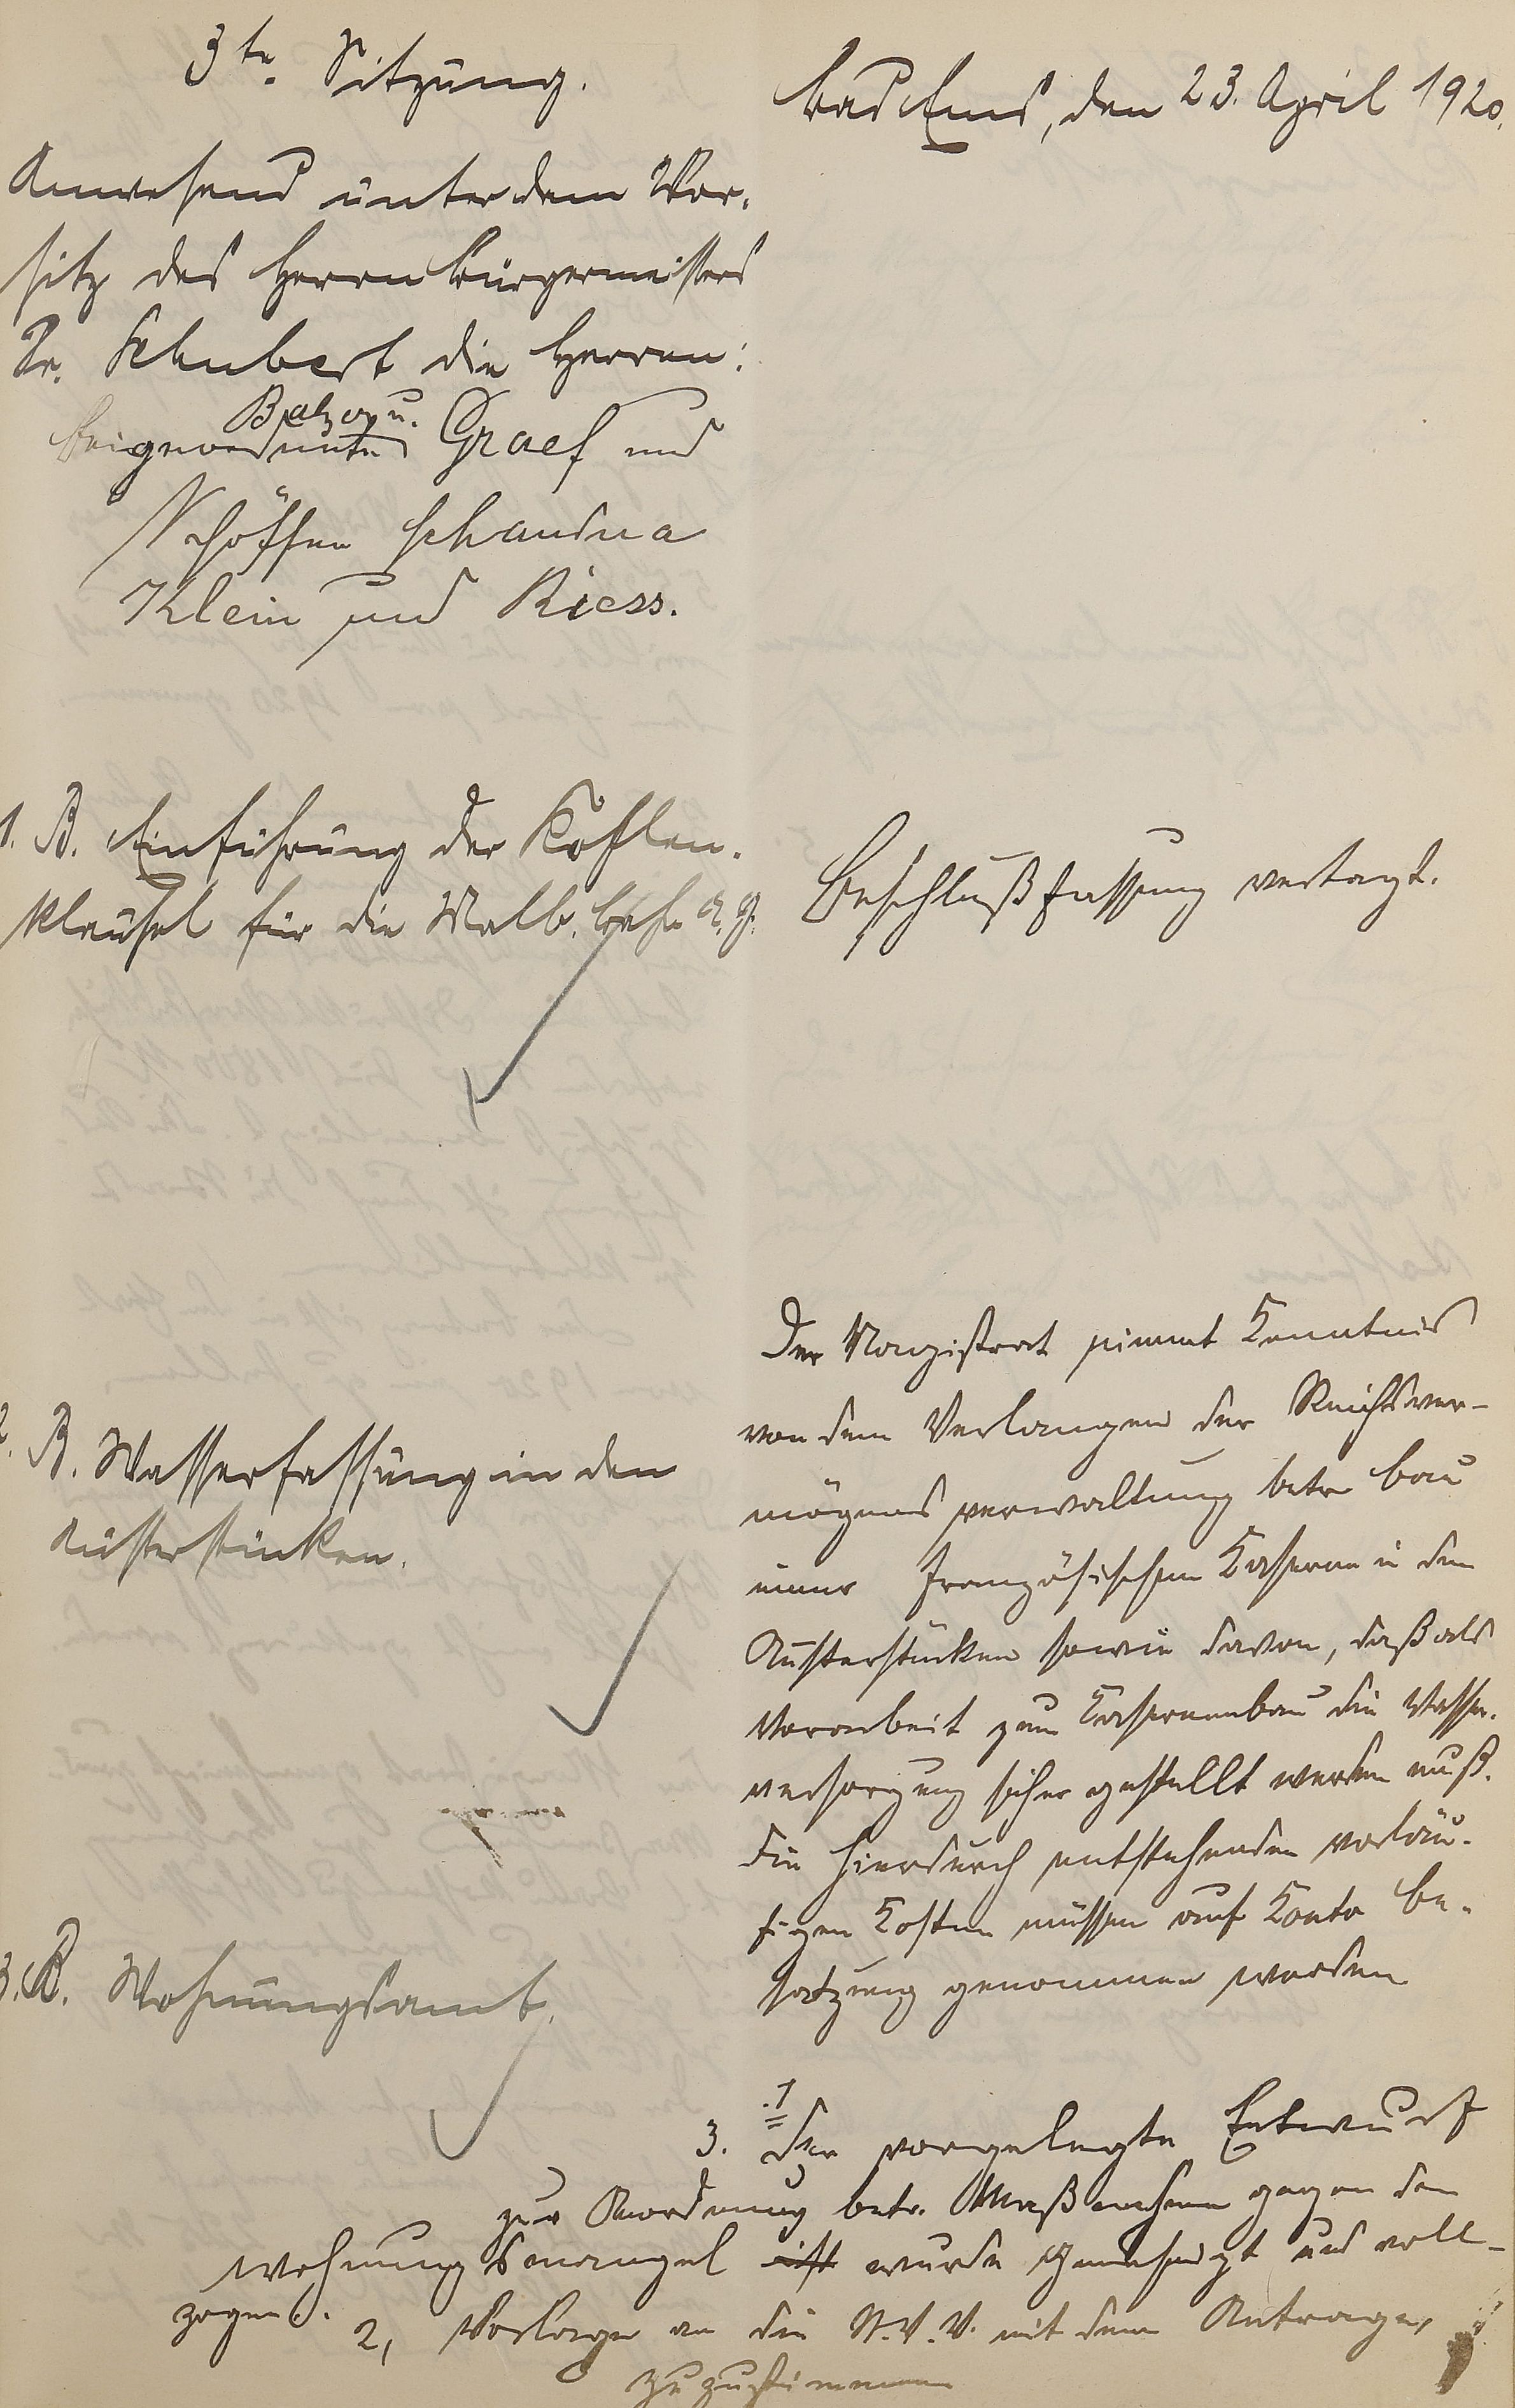 3te. Sitzung.
Bad Ems, den 23. April 1920.
Anwesend unter dem Vor-
sitz des Herrn Bürgermeisters
Dr. Schubert die Herren:
Balzer u.
Beigeordnete Graef und
Schöffen Schaudna
Klein und Riess.
1. B. Einführung der Kohlen-
klausel für die Malb. Bahn A. G.
Beschlußfassung vertagt.
2. B. Wasserfassung in den
Austerstücken.
Der Magistrat nimmt Kenntnis
von dem Verlangen der Reichsver-
mögens verwaltung betr Bau
einer französischen Kaserne in den
Austerstücken sowie davon, daß als
Vorarbeit zum Kasernenbau die Wasser-
versorgung sicher gestellt werden muß.
Die hierdurch entstehenden vorläu-
figen Kosten müssen auf Konto Be-
satzung genommen werden
3. B. Wohnungsamt.
3. 1 Der vorgelegte Entwurf
zur Anordnung betr. Maßnahmen gegen den
Wohnungsmangel ist wurde genehmigt und voll-
zogen.
2, Vorlage an die St. V. V. mit dem Antrage,
zuzustimmen